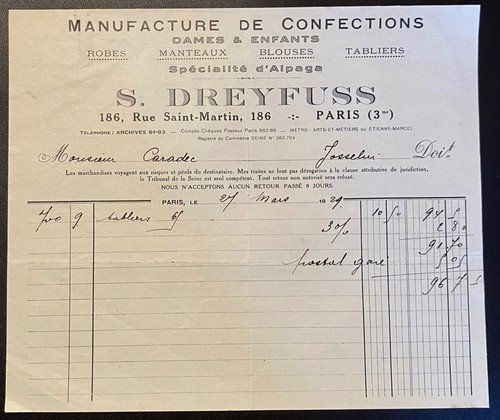 MANUFACTURE DE CONFECTIONS
DAMES & ENFANTS
ROBES MANTEAUX BLOUSES TABLIERS
Spécialité d'Alpaga
S. DREYFUSS
186, Rue Saint-Martin, 186 -:- PARIS (3me)
TÉLÉPHONE: ARCHIVES 64-93 — Compte Chèques Postaux Paris 882-86 — MÉTRO: ARTS-ET-MÉTIERS OU ÉTIENNE-MARCEL
Registre du Commerce SEINE N° 360.704
Monsieur Caradec Josselin Doit
Les marchandises voyagent aux risques et périls du destinataire. Mes traites ne font pas dérogation à la clause attributive de juridiction,
le Tribunal de la Seine est seul compétent. Tout retour non autorisé sera refusé.
NOUS N'ACCEPTONS AUCUN RETOUR PASSÉ 8 JOURS.
PARIS, LE 27 Mars 1929
700 9 tabliers 65 10 50 94 5
3% 2 80
91 70
postal gare 5 05
96 75